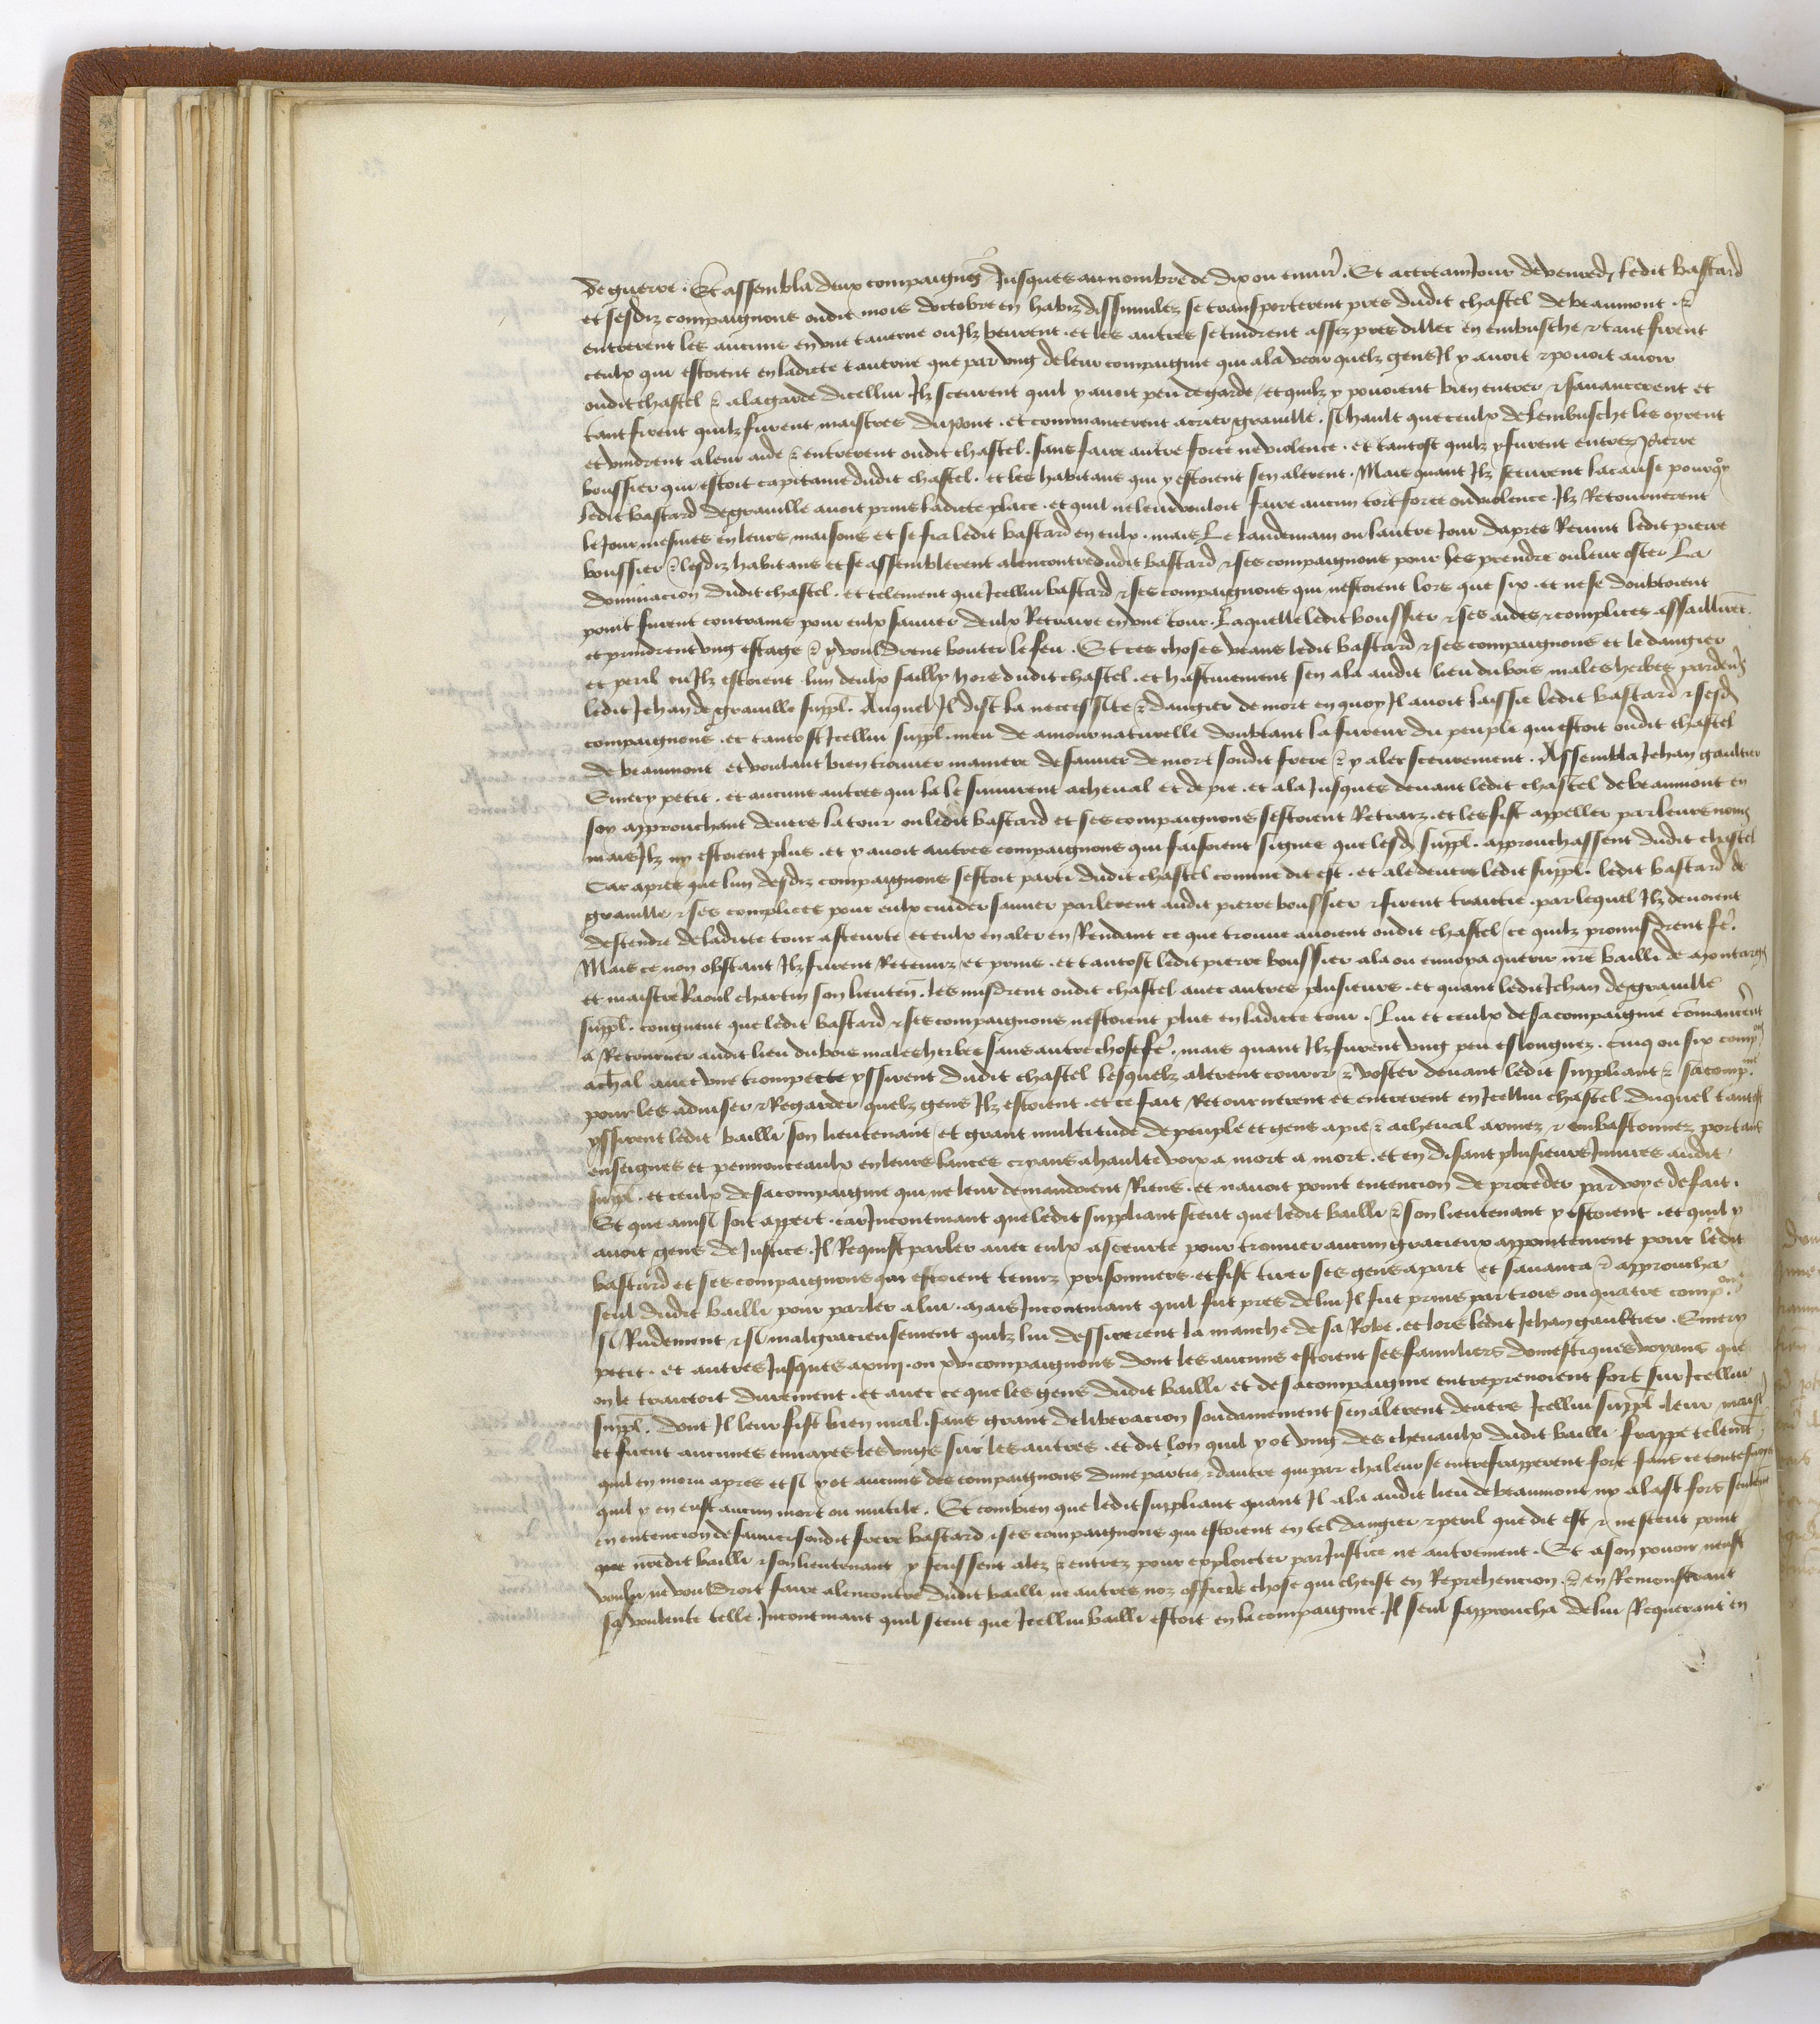 de guerre . Et assembla deux compaigns Jusques au nombre de dix ou envir . Et a certain Jour de venredj ledit bastard
et sesdiz compaignons oudit mois doctobre en habiz dissimulez se transporterent pres dudit chastel de beaumont . et
entrerent les aucuns en une taverne ou Ilz beurent . et les autres se tindrent assez pres dillec en embusche et tant firent
ceulx qui estoient en ladicte taverne que par ung de leur compaignie qui ala veoir quelz gens Il y avoit et povoit avoir
oudit chastel et a la garde dicellui Ilz sceurent quil y avoit peu de garde / et quilz y povoient bien entrer et savancerent et
tant firent quilz furent maistres du pont . et commancerent a crier graville . si hault que ceulx de lembusche les oyrent
et vindrent a leur aide et entrerent oudit chastel . sans faire autre force ne violence . et tantost quilz y furent entrez pierre
boussier qui estoit capitaine dudit chastel . et les habitans qui y estoient sen alerent . Mais quant Ilz sceurent la cause pourqoy
ledit bastard de graville avoit prins ladicte place . et quil ne leur vouloit faire aucun tort force ou violence . Ilz Retournerent
le Jour mesmes en leurs maisons et se fia ledit bastard en eulx . mais Le landemain ou lautre Jour dapres Revint ledit pierre
boussier et lesdiz habitans et se assemblerent alencontre dudit bastard et ses compaignons pour les prendre ou leur oster La
dominacion dudit chastel . et telement que Icellui bastard et ses compaignons qui nestoient lors que six . et ne se doubtoient
point furent contrains pour eulx sauver deulx Retraire en une tour . Laquelle ledit boussier et ses aides et complices assaillirent .
et prindrent ung estage et y vouldrent bouter le feu . Et ces choses veans ledit bastard et ses compaignons et le dangier
et peril ou Ilz estoient lun deulx sailly hors dudit chastel . et hastivement sen ala audit lieu du bois malesherbes par devs
ledit Jehan de graville suppl . Auquel Il dist la necessite et dangier de mort en quoy Il avoit laissie ledit bastard et sesd
compaignons . et tantost Icellui suppl . meu de amour naturelle doubtant la fureur du peuple qui estoit oudit chastel
de beaumont et voulant bien trouver maniere de sauver de mort sondit frere et y aler sceurement . Assembla Jehan gaultier
Emery petit . et aucuns autres qui la le suivirent a cheval et de pie . et ala Jusques devant ledit chastel de beaumont en
soy approuchant devers la tour ou ledit bastard et ses compaignons sestoient Retraiz . et les fist appeller par leurs noms
mais Ilz ny estoient plus . et y avoit autres compaignons qui faisoient signes que lesd suppl . approuchassent dudit chastel
Car apres que lun desdiz compaignons sestoit parti dudit chastel comme dit est . et ale devers ledit suppl . ledit bastard de
graville et ses complices pour eulx cuider sauver parlerent audit pierre boussier et firent traictie . par lequel Ilz devoient
descendre de ladicte tour a sceurte / et eulx en aler en Rendant ce que trouve avoient oudit chastel / ce quilz promisdrent fe .
Mais ce non obstant Ilz furent Retenuz / et prins . et tantost ledit pierre boussier ala ou envoya querir nre bailli de montargis
et maistre Raoul chartin son lieuten . les misdrent oudit chastel avec autres plusieurs . et quant ledit Jehan de graville
suppl . congneut que ledit bastard et ses compaignons nestoient plus en ladicte tour . Lui et ceulx de sa compaignie comancerent
a Retourner audit lieu du bois malesherbes sans autre chose fe . mais quant Ilz furent ung peu eslongnez . cinq ou six comp ons
a cheval avec une trompecte yssirent dudit chastel lesquelz alerent courir et voster devant ledit suppliant et sa comp . nie
pour les adviser et Regarder quelz gens Ilz estoient . et ce fait Retournerent et entrerent en Icellui chastel duquel tantost
yssirent ledit bailli son lieutenant / et grant multitude de peuple et gens a pie et a cheval armez et embastonnez portans
enseignes et pennonceaulx en leurs lances cryans a haulte voix a mort a mort . et en disant plusieurs Injures audit
suppl . et ceulx de sa compaignie qui ne leur demandoient Riens . et navoit point entencion de proceder par voye de fait .
Et que ainsi soit appert . car Incontinant que ledit suppliant sceut que ledit bailli et son lieutenant y estoient . et quil y
avoit gens de Justice . Il Requist parler avec eulx a sceurte pour trouver aucun gracieux appointement pour ledit
bastard et ses compaignons qui estoient tenuz prisonniers . et fist tirer ses gens apart et savanca et approucha
seul dudit bailli pour parler a lui . mais Incontinant quil fut pres de lui Il fut prins par trois ou quatre comp . ons
si Rudement et si malgracieusement quilz lui dessirerent la manche de sa Robe . et lors ledit Jehan gaultier . Emery
petit . et autres Jusques a xiiij . ou xvi compaignons dont les aucuns estoient ses familiers domestiques voyans que
on le traictoit durement . et avec ce que les gens dudit bailli et de sa compaignie entreprenoient fort sur Icellui
suppl . dont Il leur fist bien mal . sans grant deliberacion soudainement sen alerent devers Icellui suppl leur maist
et firent aucunes envayes les ungs sur les autres . et dit lon quil y ot ung des chevaulx dudit bailli frappe telemt
quil en moru apres et si y ot aucuns des compaignons dune partie et dautre qui par chaleur se entrefrapperent fort . sans ce toutesvoyes
quil y en eust aucun mort ou mutile . Et combien que ledit suppliant quant Il ala audit lieu de beaumont ny alast fors seulemt
en entencion de sauver sondit frere bastard et ses compaignons qui estoient en tel dangier et peril que dit est et ne sceut point
que nredit bailli et son lieutenant y feussent alez et entrez pour exploicter par Justice ne autrement . Et a son povoir neust
voulu ne vouldroit faire alencontre dudit bailli ne autres noz officiers chose qui cheist en Reprehencion . et en Remonstrant
sa voulente telle Incontinant quil sceut que Icellui bailli estoit en la compaignie . Il seul sapproucha de lui Requerant en